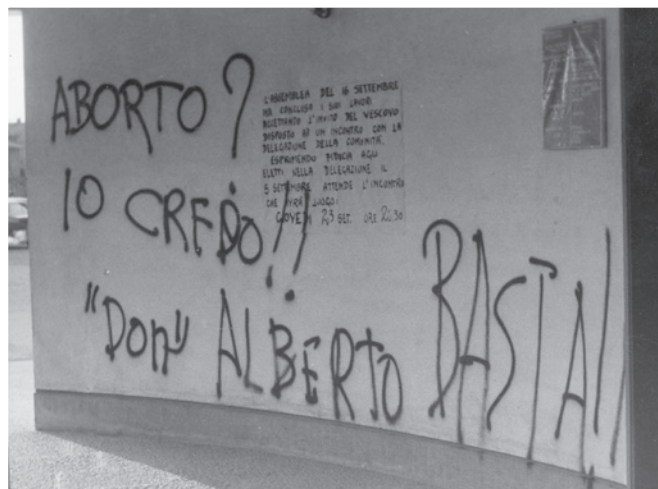 ABORTO?
IO CREDO!!
"Don" ALBERTO BASTA!!
L'ASSEMBLEA DEL 16 SETTEMBRE
HA CONCLUSO I SUOI LAVORI
ACCETTANDO L'INVITO DEL VESCOVO
DISPOSTO AD UN INCONTRO CON LA
DELEGAZIONE DELLA COMUNITA'.
ESPRIMENDO FIDUCIA AGLI
ELETTI NELLA DELEGAZIONE IL
5 SETTEMBRE ATTENDE L'INCONTRO
CHE AVRA' LUOGO:
GIOVEDI 23 SET. ORE 20,30